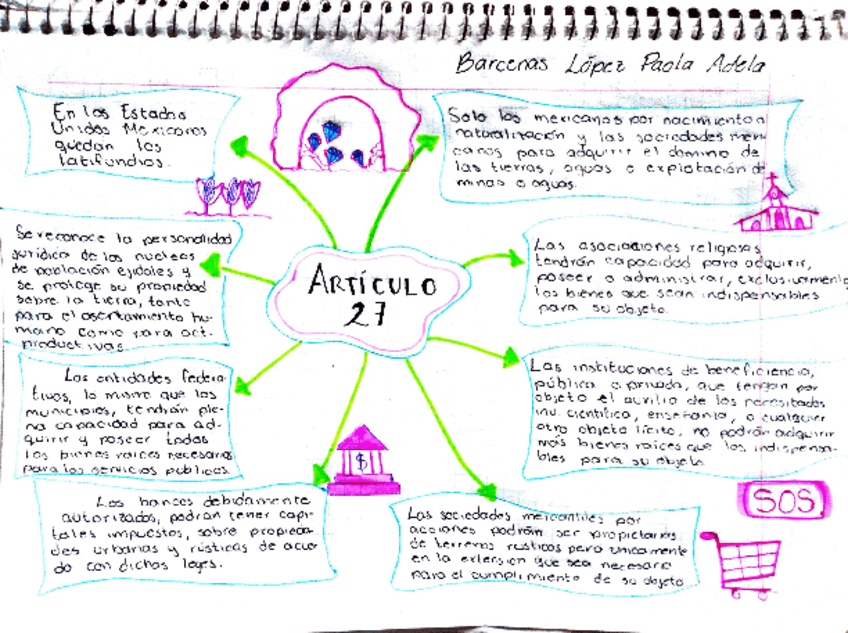 Barcenas López Paola Adela
En los Estados
Unidos Mexicanos
quedan los
latifundios.
Solo los mexicanos por nacimiento o
naturalización y las sociedades mexi
canas para adquirir el dominio de
las tierras, aguas o explotación d
minas o aguas.
ARTÍCULO
27
Se reconoce la personalidad
jurídica de los nucleos
de población ejidales y
se protege su propiedad
sobre la tierra, tanto
para el asentamiento hu-
mano como para act.
productivas.
Las asociaciones religiosas
tendrán capacidad para adquirir,
poseer o administrar, exclusivamente
los bienes que sean indispensables
para su objeto.
Las entidades federa
tivas, lo mismo que los
municipios, tendrán ple-
na capacidad para ad-
quirir y poseer todos
los bienes raices necesarios
para los servicios publicos.
Las instituciones de beneficiencia,
pública o privada, que tengan por
objeto el auxilio de los necesitados
inv. científica, enseñanza, o cualquier
otro objeto lícito, no podrán adquirir
más bienes raíces que los indispensa-
bles para su objeto.
$
Los bancos debidamente
autorizados, podrán tener capi-
tales impuestos, sobre propieda-
des urbanas y rústicas de acuer
do con dichas leyes.
Las sociedades mercantiles por
acciones podrán ser propietarias
de terrenos rústicos pero unicamente
en la extension que sea necesaria
para el cumplimiento de su objeto
SOS